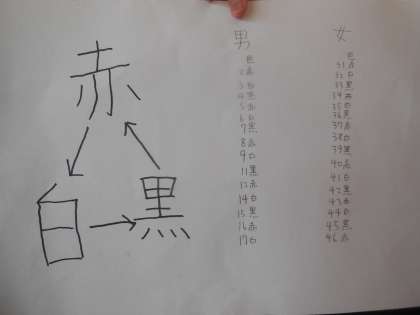 赤
白
黒
男
白
2赤
3白
4黒
5赤
6白
7黒
8赤
9白
11黒
12赤
14白
15黒
16赤
17白
女
白
31赤
32白
33黒
34赤
35白
36黒
37赤
38白
39黒
40赤
41白
42黒
43赤
44白
45黒
46赤